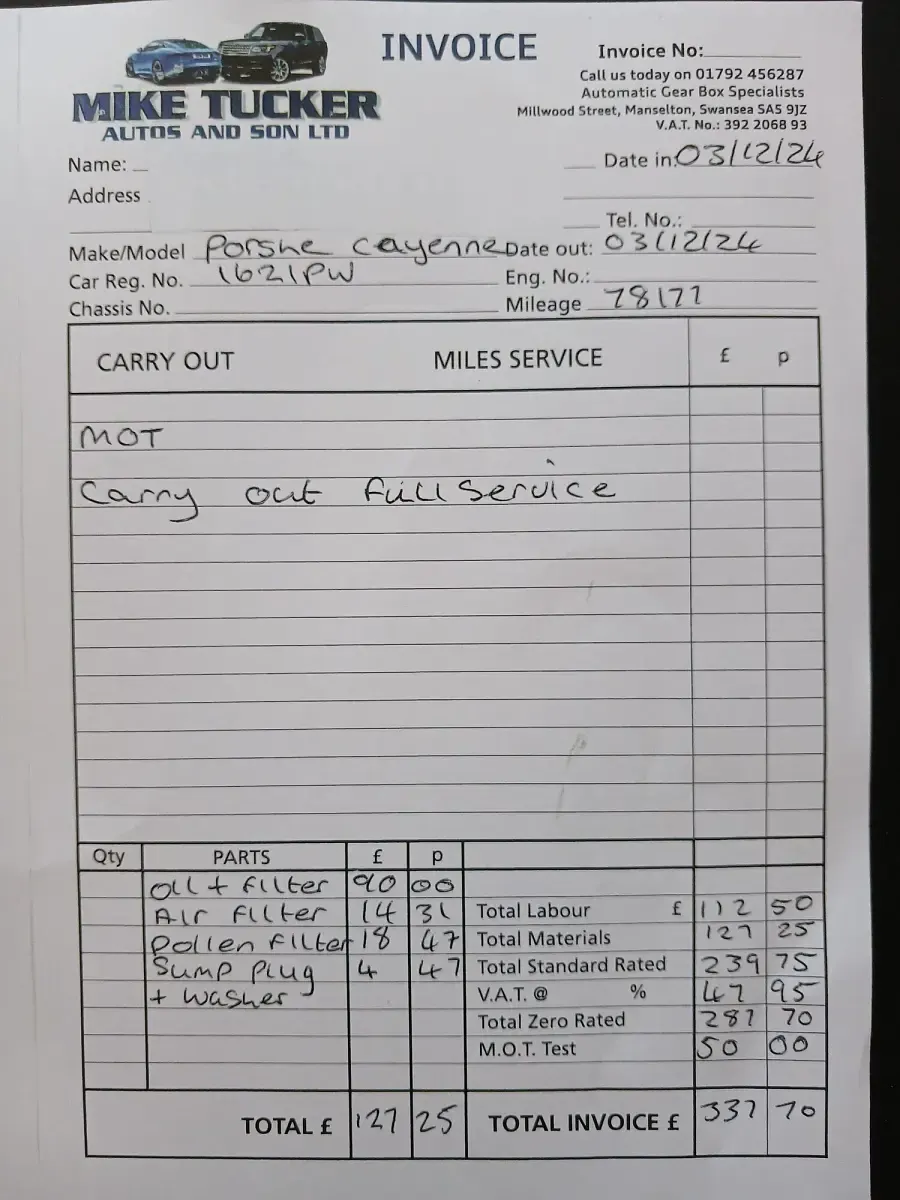 INVOICE
Invoice No:
Call us today on 01792 456287
Automatic Gear Box Specialists
Millwood Street, Manselton, Swansea SA5 9JZ
V.A.T. No.: 392 2068 93
MIKE TUCKER
AUTOS AND SON LTD
Name: Date in: 03/12/24
Address
Tel. No.:
Make/Model Porshe Cayenne Date out: 03/12/24
Car Reg. No. 1621PW Eng. No.:
Chassis No. Mileage 78177
CARRY OUT MILES SERVICE £ p
MOT
Carry out full service
Qty PARTS £ p
Oil + filter 90 00
Air filter 14 31 Total Labour £ 112 50
Pollen filter 18 47 Total Materials 127 25
Sump plug 4 47 Total Standard Rated 239 75
+ washer V.A.T. @ % 47 95
Total Zero Rated 287 70
M.O.T. Test 50 00
TOTAL £ 127 25 TOTAL INVOICE £ 337 70